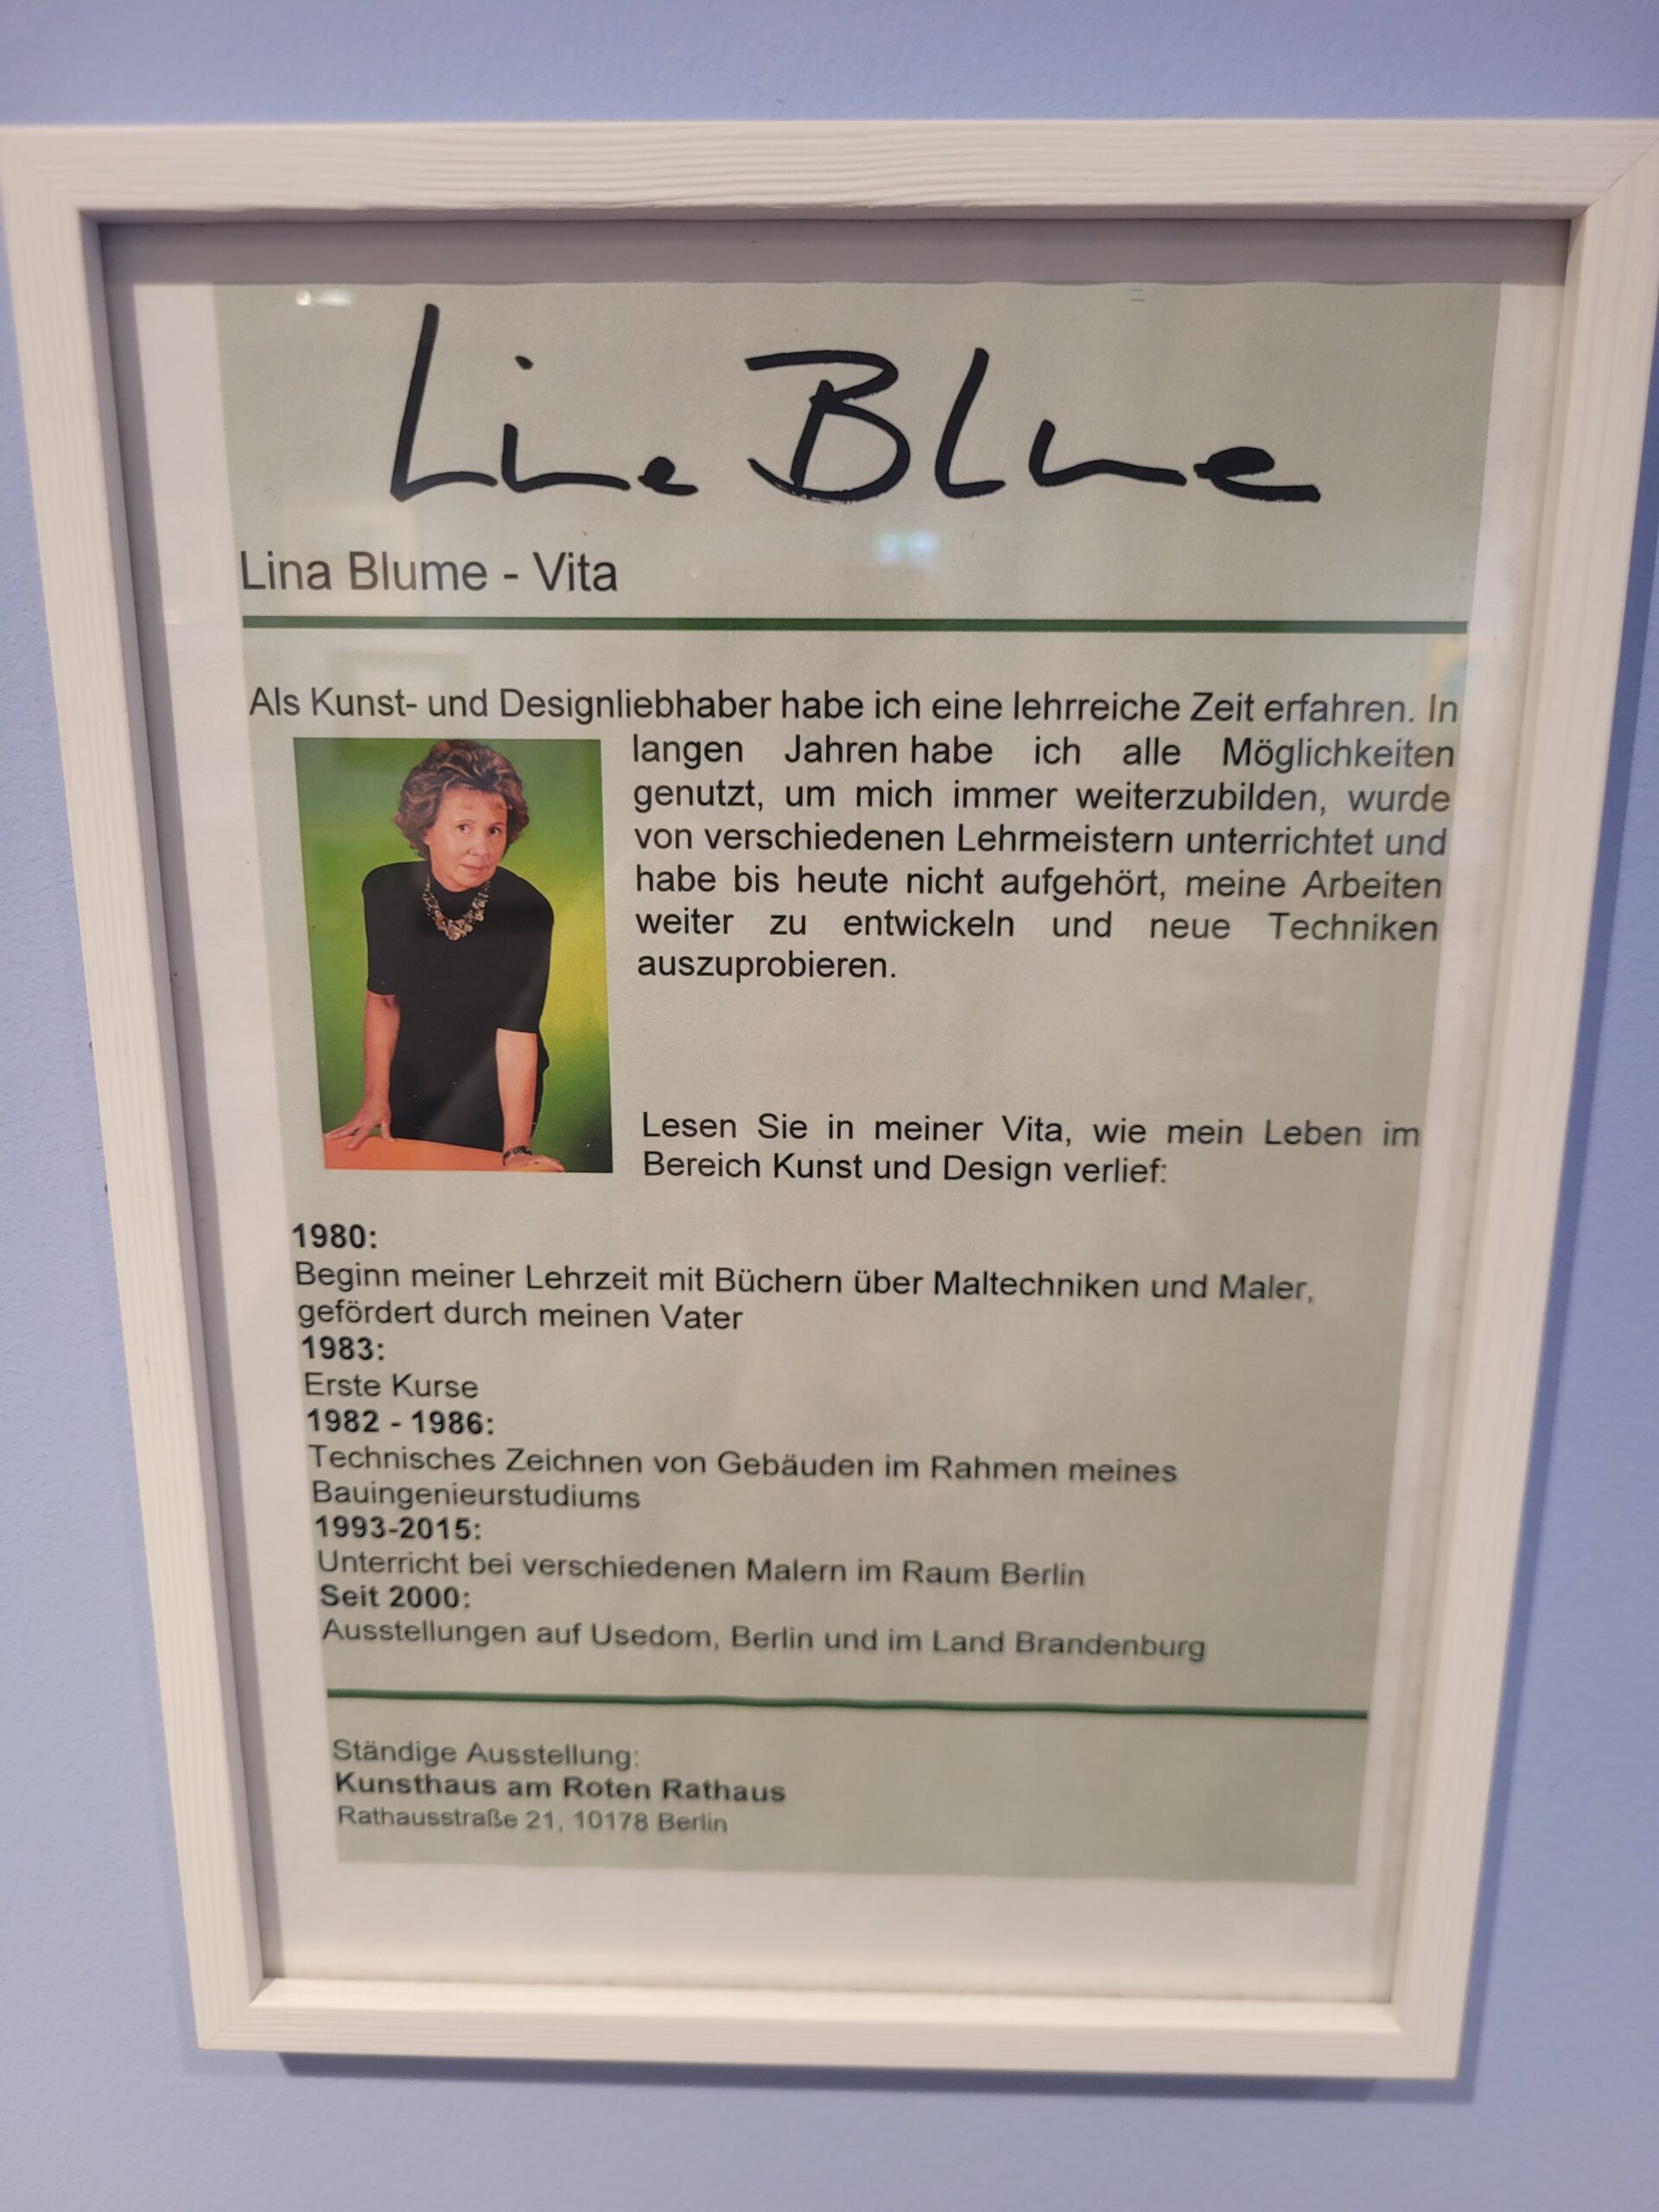 Line Blume
Lina Blume - Vita
Als Kunst- und Designliebhaber habe ich eine lehrreiche Zeit erfahren. In
langen Jahren habe ich alle Möglichkeiten
genutzt, um mich immer weiterzubilden, wurde
von verschiedenen Lehrmeistern unterrichtet und
habe bis heute nicht aufgehört, meine Arbeiten
weiter zu entwickeln und neue Techniken
auszuprobieren.
Lesen Sie in meiner Vita, wie mein Leben im
Bereich Kunst und Design verlief:
1980:
Beginn meiner Lehrzeit mit Büchern über Maltechniken und Maler,
gefördert durch meinen Vater
1983:
Erste Kurse
1982 - 1986:
Technisches Zeichnen von Gebäuden im Rahmen meines
Bauingenieurstudiums
1993-2015:
Unterricht bei verschiedenen Malern im Raum Berlin
Seit 2000:
Ausstellungen auf Usedom, Berlin und im Land Brandenburg
Ständige Ausstellung:
Kunsthaus am Roten Rathaus
Rathausstraße 21, 10178 Berlin